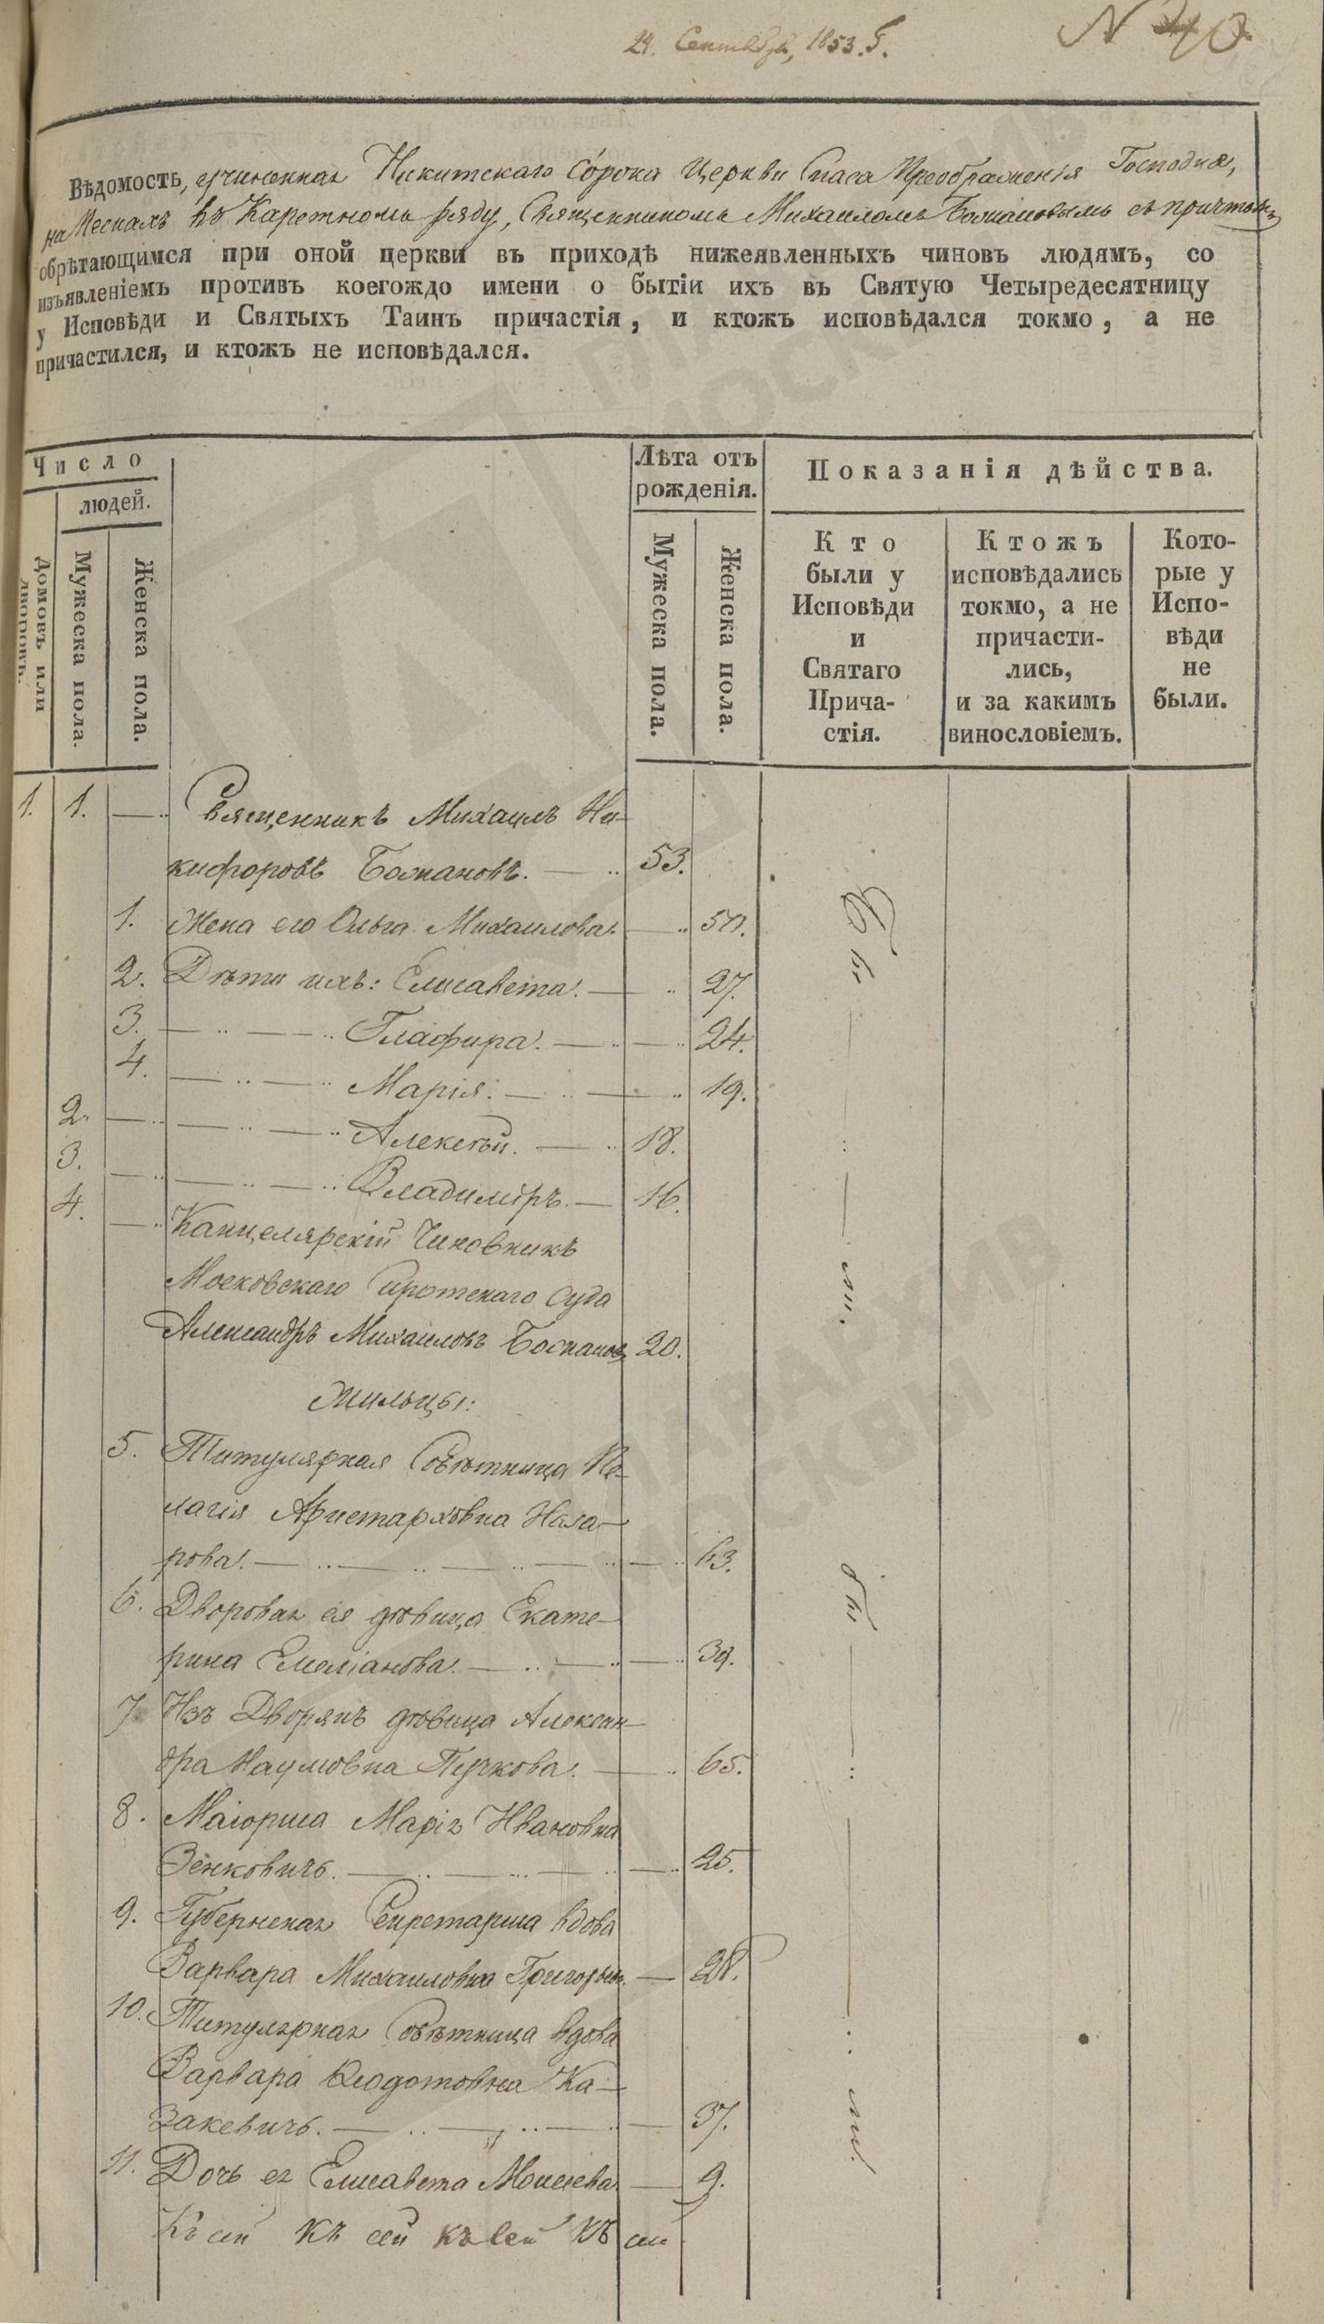 24. Сентября, 1853. г.
N 40.
Вѣдомость, учиненная Никитскаго сóрока Церкви Спаса Преображенія Господня,
на Пескахъ въ Каретномъ ряду, Священникомъ Михаиломъ Божановымъ съ причтомъ
обрѣтающимся при оной церкви въ приходѣ нижеявленныхъ чиновъ людямъ, со
изъявленіемъ противъ коегождо имени о бытіи ихъ въ Святую Четыредесятницу
у Исповѣди и Святыхъ Таинъ причастія, и ктожъ исповѣдался токмо, а не
причастился, и ктожъ не исповѣдался.
Число
людей.
Домовъ или дворовъ.
Мужеска пола.
Женска пола.
Лѣта отъ
рожденія.
Мужеска пола.
Женска пола.
Показанія дѣйства.
Кто
были у
Исповѣди
и
Святаго
Прича-
стія.
Ктожъ
исповѣдались
токмо, а не
причасти-
лись,
и за какимъ
винословіемъ.
Кото-
рые у
Испо-
вѣди
не
были.
1. 1. Священникъ Михаилъ Ни-
кифоровъ Божановъ. 53.
1. Жена его Ольга Михаилова. 50.
2. Дѣти ихъ: Елисавета. 27.
3. Глафира. 24.
4. Марія. 19.
2. Алексѣй. 18.
3. Владиміръ. 16.
4. Канцелярскій Чиновникъ
Московскаго Сиротскаго Суда
Александръ Михаиловъ Божановъ 20.
Жильцы:
5. Титулярная Совѣтница Пе-
лагія Аристарховна Наза-
рова. 63.
6. Дворовая ея дѣвица Екате-
рина Емеліанова. 39.
7. Изъ Дворянъ дѣвица Алексан-
дра Наумовна Пучкова. 65.
8. Маіорша Марія Ивановна
Зенковичъ. 25.
9. Губернская Секретарша вдова
Варвара Михаиловна Григорьев. 28.
10. Титулярная Совѣтница вдова
Варвара Ѳеодотовна Ка-
закевичъ. 37.
11. Дочь ея Елисавета Моисеева 9.
Къ сей къ сей къ сей къ сей
Бы
ли.
Бы
ли